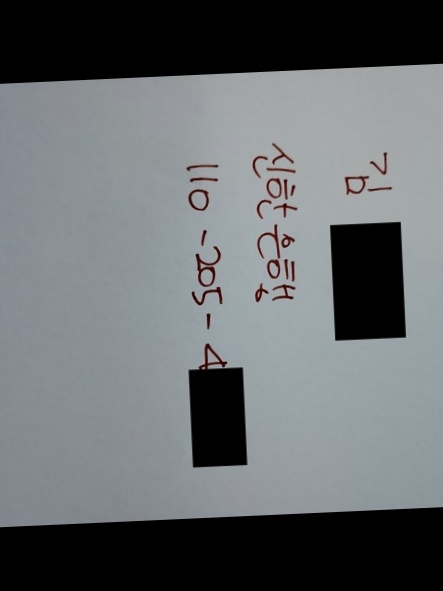 김
신한은행
110-205-4